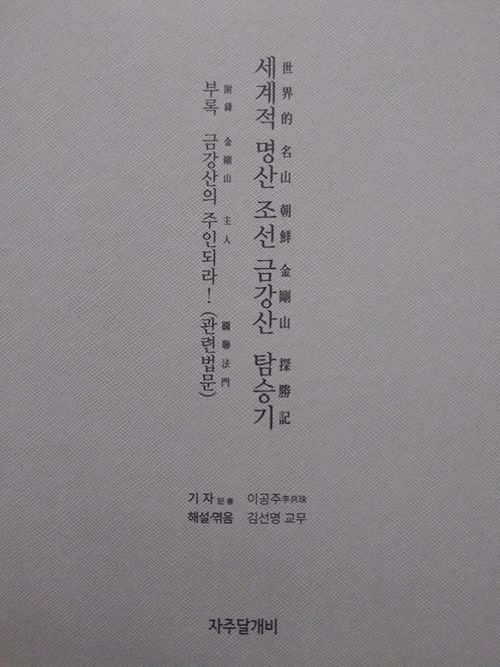 세계적 명산 조선 금강산 탐승기
世界的 名山 朝鮮 金剛山 探勝記
부록 금강산의 주인되라! (관련법문)
附錄 金剛山 主人 關聯法門
기자記者 이공주李共珠
해설·엮음 김선명 교무
자주달개비